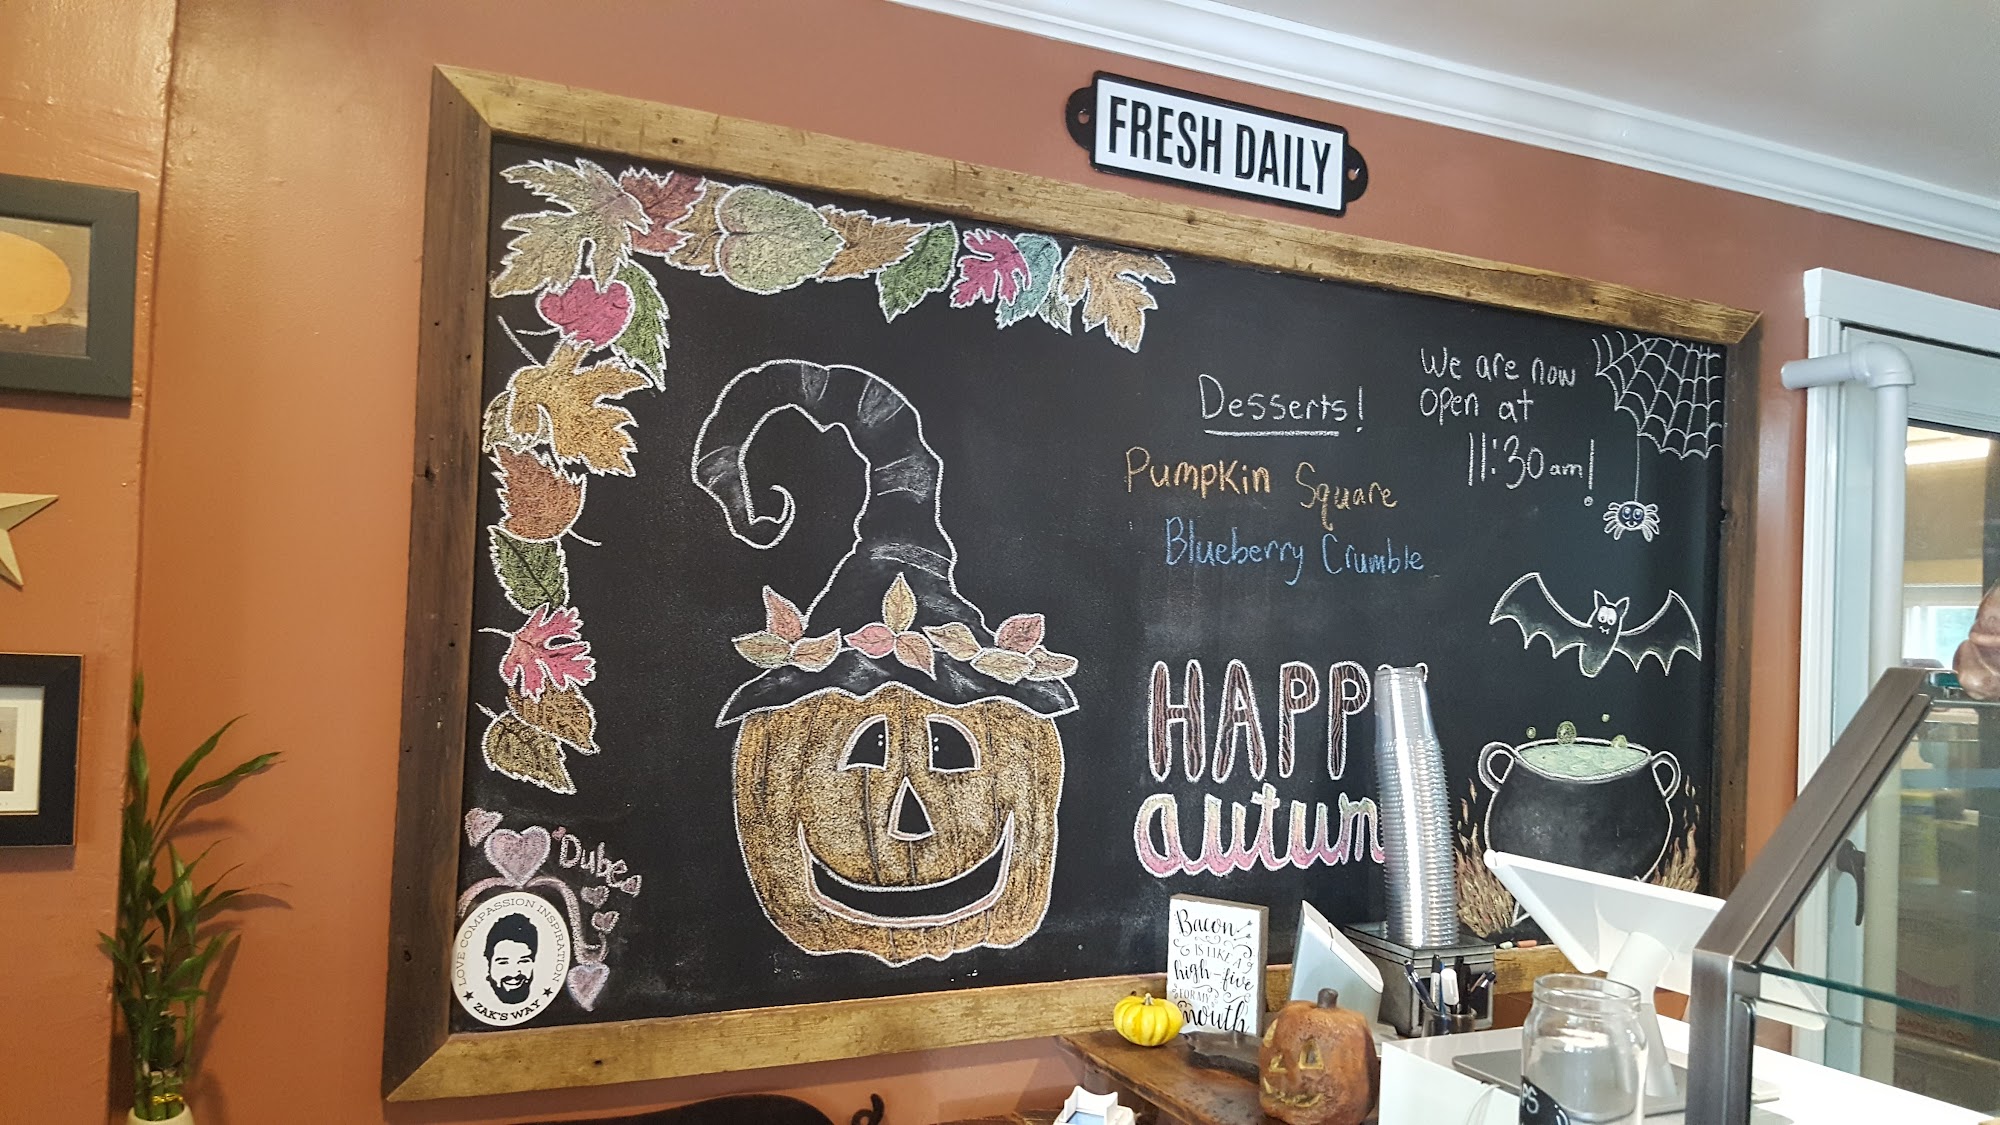 FRESH DAILY
Desserts!
Pumpkin Square
Blueberry Crumble
We are now
open at
11:30 am!
HAPP
autum
Dube
LOVE COMPASSION INSPIRATION
★ ZAK'S WAY ★
Bacon
IS LIKE A
high-five
FOR MY
mouth
PS